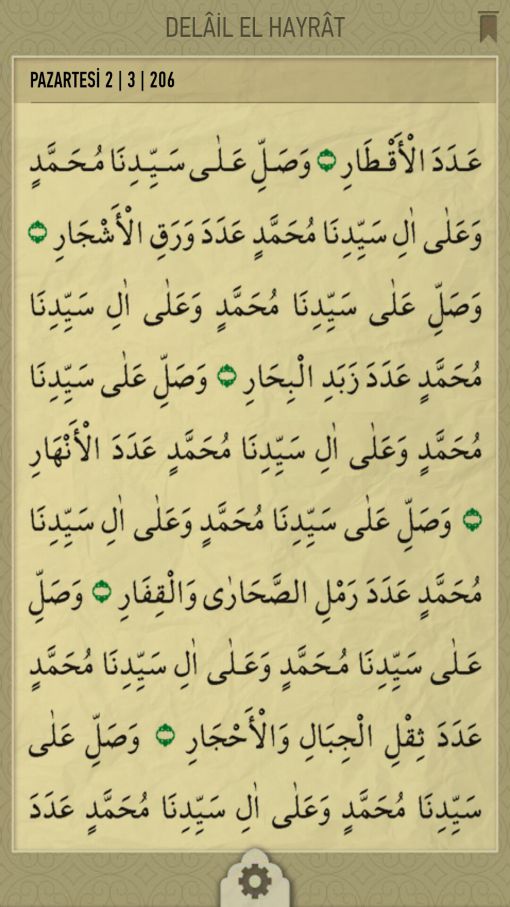 DELÂİL EL HAYRÂT
PAZARTESİ 2 | 3 | 206
عَدَدَ الْأَقْطَارِ ۝ وَصَلِّ عَلٰى سَيِّدِنَا مُحَمَّدٍ
وَعَلٰى اٰلِ سَيِّدِنَا مُحَمَّدٍ عَدَدَ وَرَقِ الْأَشْجَارِ ۝
وَصَلِّ عَلٰى سَيِّدِنَا مُحَمَّدٍ وَعَلٰى اٰلِ سَيِّدِنَا
مُحَمَّدٍ عَدَدَ زَبَدِ الْبِحَارِ ۝ وَصَلِّ عَلٰى سَيِّدِنَا
مُحَمَّدٍ وَعَلٰى اٰلِ سَيِّدِنَا مُحَمَّدٍ عَدَدَ الْأَنْهَارِ
۝ وَصَلِّ عَلٰى سَيِّدِنَا مُحَمَّدٍ وَعَلٰى اٰلِ سَيِّدِنَا
مُحَمَّدٍ عَدَدَ رَمْلِ الصَّحَارٰى وَالْقِفَارِ ۝ وَصَلِّ
عَلٰى سَيِّدِنَا مُحَمَّدٍ وَعَلٰى اٰلِ سَيِّدِنَا مُحَمَّدٍ
عَدَدَ ثِقْلِ الْجِبَالِ وَالْأَحْجَارِ ۝ وَصَلِّ عَلٰى
سَيِّدِنَا مُحَمَّدٍ وَعَلٰى اٰلِ سَيِّدِنَا مُحَمَّدٍ عَدَدَ